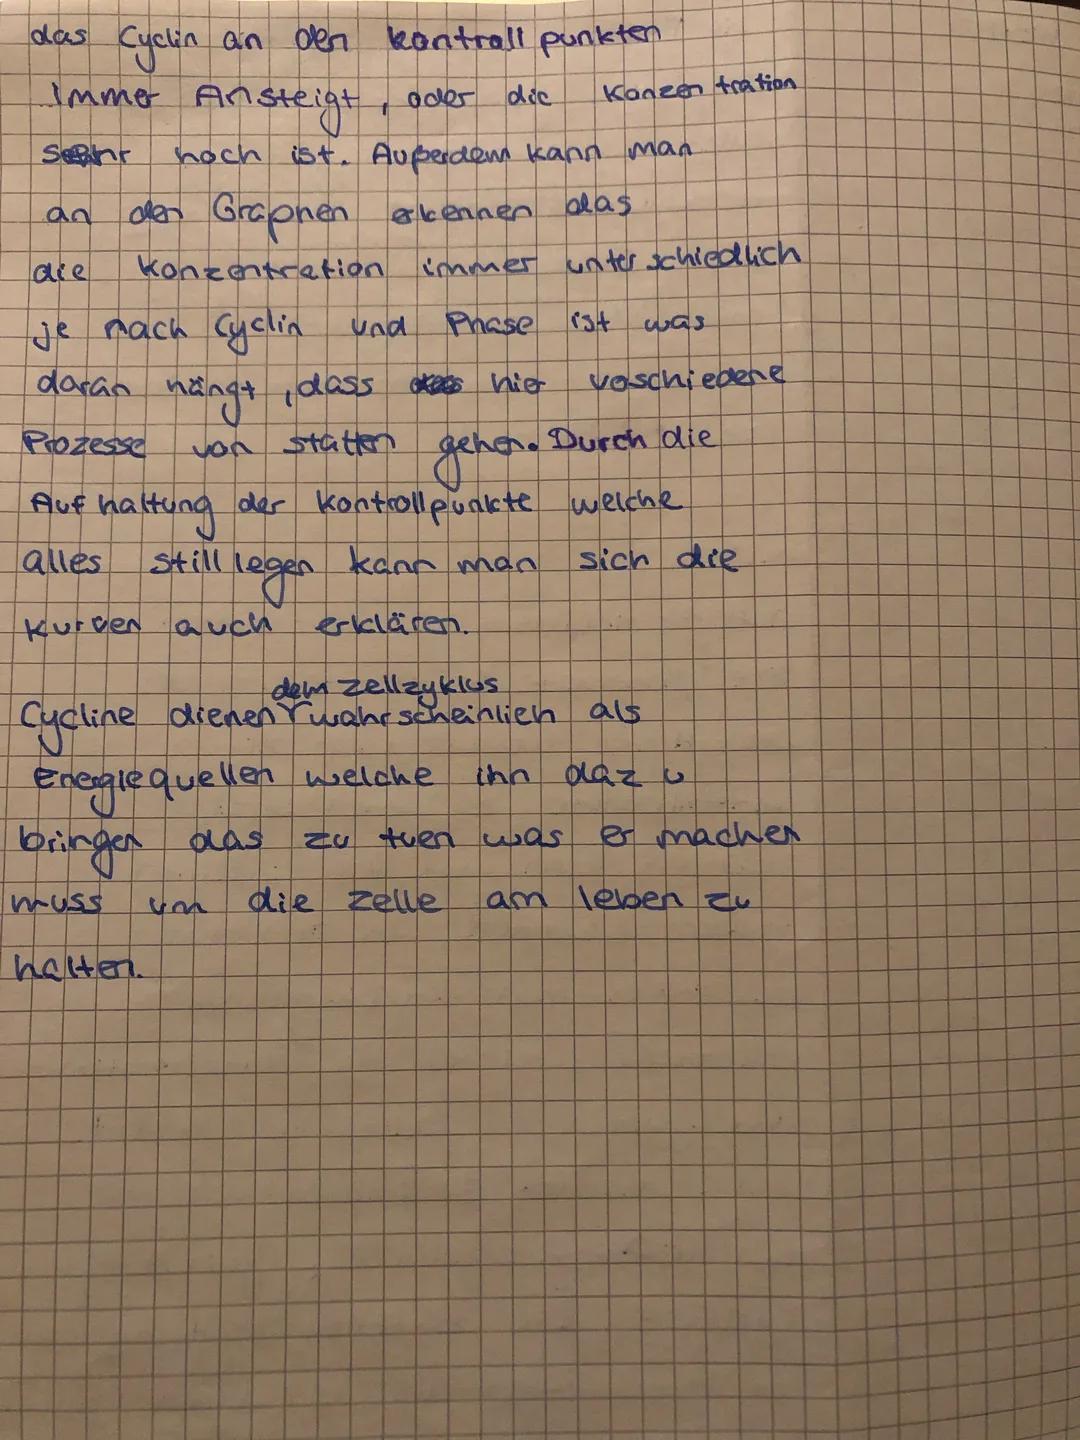 das Cyclin an den kontroll punkten
Immer Ansteigt, oder die Konzen tration
sehr hoch ist. Außerdem kann man
an den Graphen erkennen das
die Konzentration immer unterschiedlich
je nach Cyclin und Phase ist was
daran hängt, dass hier veschiedene
Prozesse von statten gehen. Durch die
Aufhaltung der Kontrollpunkte welche
alles still legen kann man sich die
Kurven auch erklären.
dem zellzyklus
Cycline dienen wahrscheinlich als
Energiequellen welche ihn dazu
bringen das zu tuen was er machen
muss um die zelle am leben zu
halten.